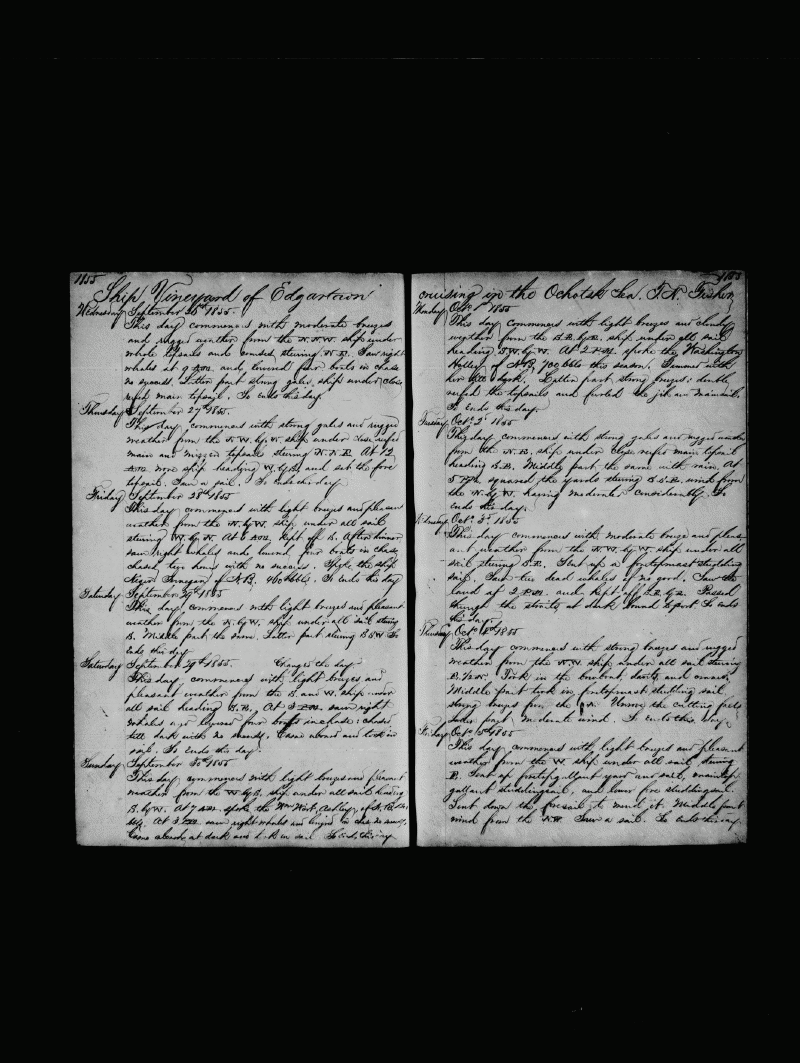 1855
Ship Vineyard of Edgartown
Wednesday September 26th 1855.
This day commences with moderate breezes
and rugged weather from the N.N.W. ship under
whole topsails and courses, steering N.E. Saw right
whales at 9 A.M. and lowered four boats in chase
no success. Latter part strong gales, ship under close
reefed main topsail. So ends this day.
Thursday September 27th 1855.
This day commences with strong gales and rugged
weather from the N.W. by W. ship under close reefed
main and mizzen topsails steering N.N.E. At 12
A.M. wore ship heading W. by S. and set the fore
topsail. Saw a sail. So ends this day
Friday September 28th 1855
This day commences with light breezes and pleasant
weather from the N. by W. ship under all sail
steering W. by N. At 6 A.M. kept off S. Afternoon
saw right whales and lowered four boats in chase
chased two hours with no success. Spoke the ship
of N.B. So ends this day
Saturday September 29th 1855
This day commences with light breezes and pleasant
weather from the N. by W. ship under all sail steering
S. Middle part the same. Latter part steering So
ends this day
Saturday September 29th 1855. Changes the day
This day commences with light breezes and
pleasant weather from the S. and W. ship under
all sail heading S.E. At 3 P.M. saw right
whales and lowered four boats in chase: chased
till dark with no success. Came aboard and took in
sail. So ends this day.
Sunday September 30th 1855
This day commences with light breezes and pleasant
weather from the W. by S. ship under all sail heading
S. by W. At 7 A.M. spoke the Wm Wirt, Ashley, of N.B.
At 3 P.M. saw right whales and lowered in chase no success
Came aboard at dark and took in sail. So ends this day
1855
cruising in the Ochotsk Sea. T.N. Fisher
Monday Oct. 1st 1855
This day commences with light breezes and cloudy
weather from the S.E. by E. ship under all sail
heading S.W. by W. At 2 P.M. spoke the Washington
Holley of N.B. 700 bbls this season. Gammed with
her till dark. Latter part strong breezes: double
reefed the topsails and furled the jib and mainsail.
So ends this day
Tuesday Oct. 2d 1855
This day commences with strong gales and rugged weather
from the N.E. ship under close reefed main topsail
heading S.E. Middle part the same with rain. At
5 P.M. squared the yards steering S.S.E. wind from
the N. by W. having moderated considerably. So
ends this day.
Wednesday Oct. 3d 1855
This day commences with moderate breeze and pleas-
ant weather from the N.W. by W. ship under all
sail steering S.E. Sent up a foretopmast studding
sail. Saw two dead whales of no good. Saw the
land at 2 P.M. and kept off S.E. by E. Passed
through the straits at dark bound to port So ends
this day.
Thursday Oct. 4th 1855
This day commences with strong breezes and rugged
weather from the N.W. ship under all sail steering
Took in the bowboat, davits and cranes
Middle part took in foretopmast studding sail
strong breezes from the N. Unrove the cutting falls
Latter part moderate wind. So ends this day
Friday Oct. 5th 1855
This day commences with light breezes and pleasant
weather from the W. ship under all sail, steering
E. Sent up foretopgallant yard and sail, maintop
gallant studdingsail, and lower fore studdingsail.
Sent down the foresail to mend it. Middle part
wind from the N.W. Saw a sail. So ends this day